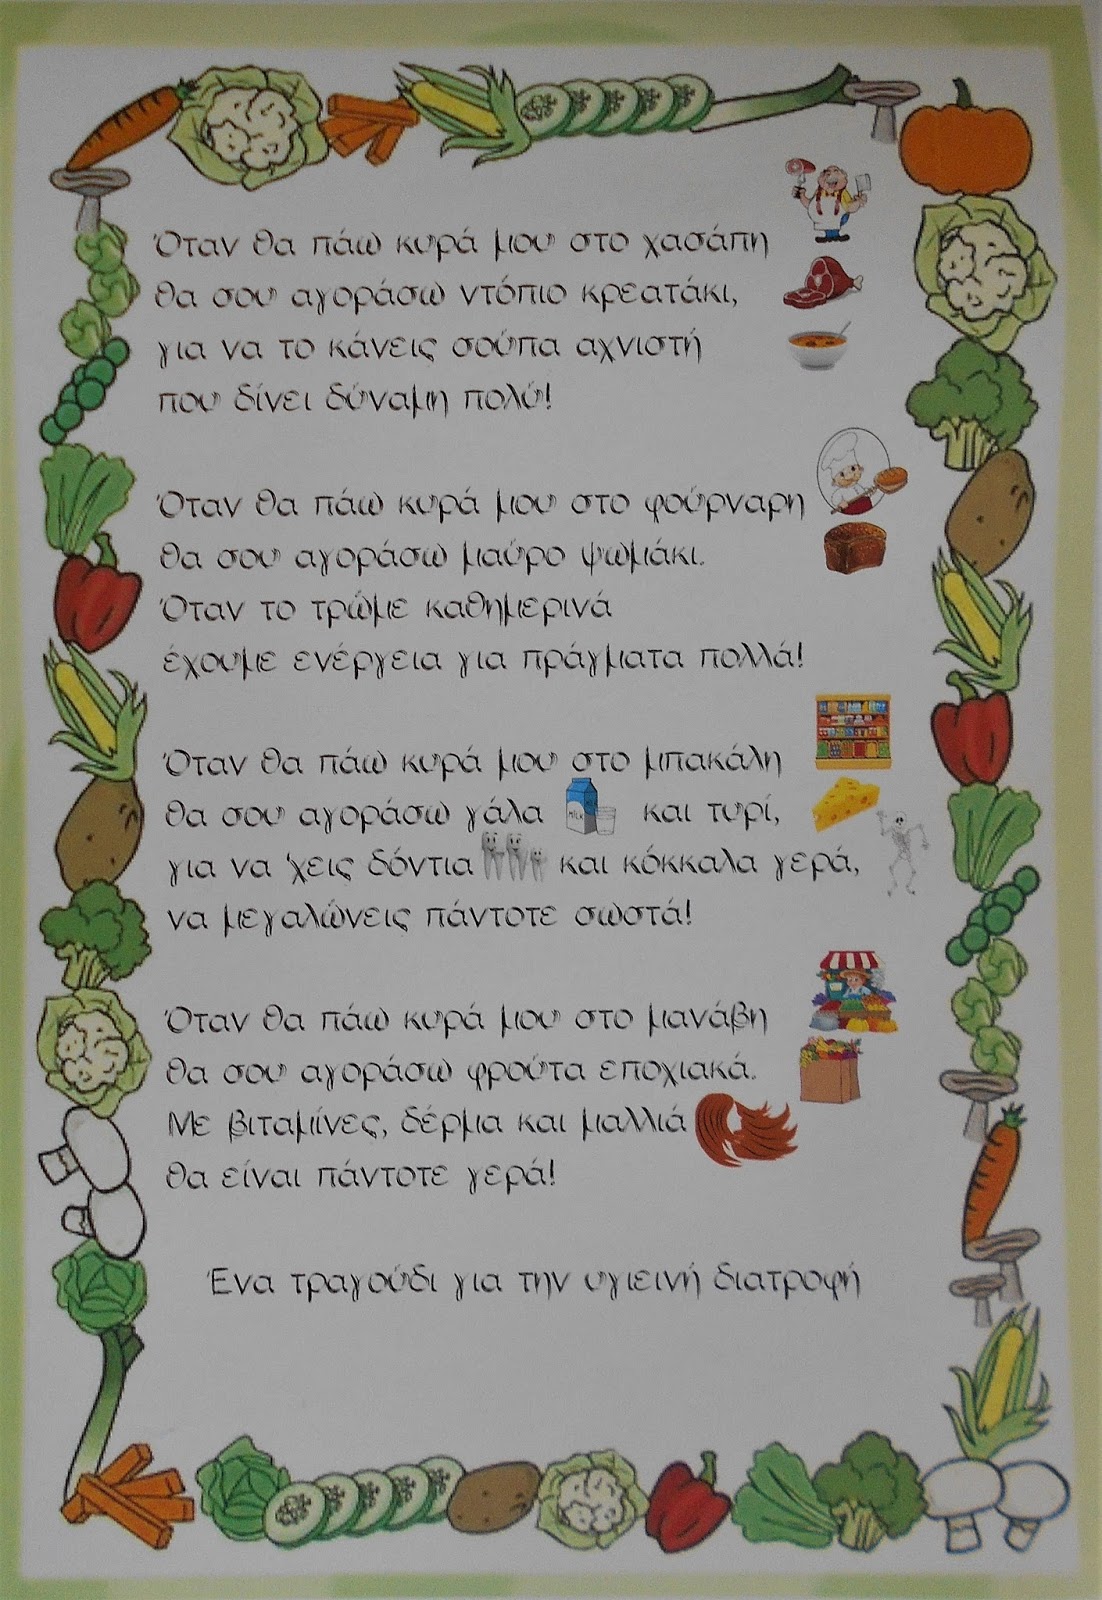 Όταν θα πάω κυρά μου στο χασάπη
θα σου αγοράσω ντόπιο κρεατάκι,
για να το κάνεις σούπα αχνιστή
που δίνει δύναμη πολύ!
Όταν θα πάω κυρά μου στο φούρναρη
θα σου αγοράσω μαύρο ψωμάκι.
Όταν το τρώμε καθημερινά
έχουμε ενέργεια για πράγματα πολλά!
Όταν θα πάω κυρά μου στο μπακάλη
θα σου αγοράσω γάλα MILK και τυρί,
για να 'χεις δόντια και κόκκαλα γερά,
να μεγαλώνεις πάντοτε σωστά!
Όταν θα πάω κυρά μου στο μανάβη
θα σου αγοράσω φρούτα εποχιακά.
Με βιταμίνες, δέρμα και μαλλιά
θα είναι πάντοτε γερά!
Ένα τραγούδι για την υγιεινή διατροφή